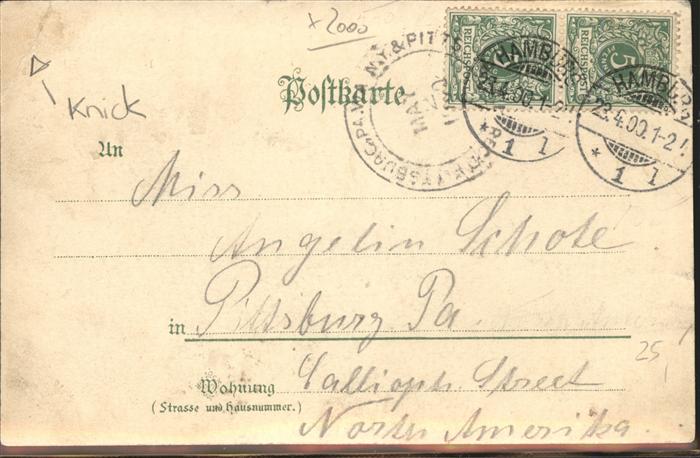 × 2000
Knick
Postkarte
N.Y. & PITTS
MAY
PITTSBURG, PA.
REICHSPOST
5
REICHSPOST
5
HAMBURG
23.4.00.1-2
* 1 l
HAMBURG
23.4.00.1-2
* 1 l
An
Miss
Angelin Schote
in Pittsburg Pa.
25,
Wohnung Calliope Street
(Strasse und Hausnummer.)
North Amerika.